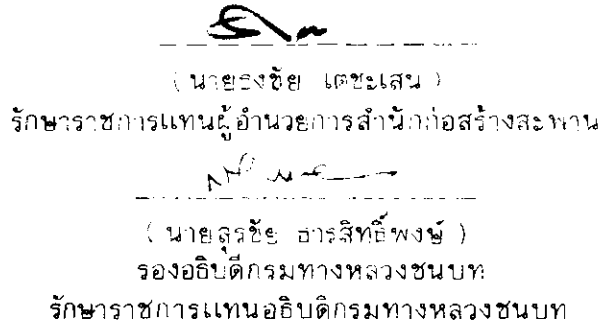 ( นายธงชัย เตชะเสน )
รักษาราชการแทนผู้อำนวยการสำนักก่อสร้างสะพาน
( นายสุรชัย ธารสิทธิ์พงษ์ )
รองอธิบดีกรมทางหลวงชนบท
รักษาราชการแทนอธิบดีกรมทางหลวงชนบท